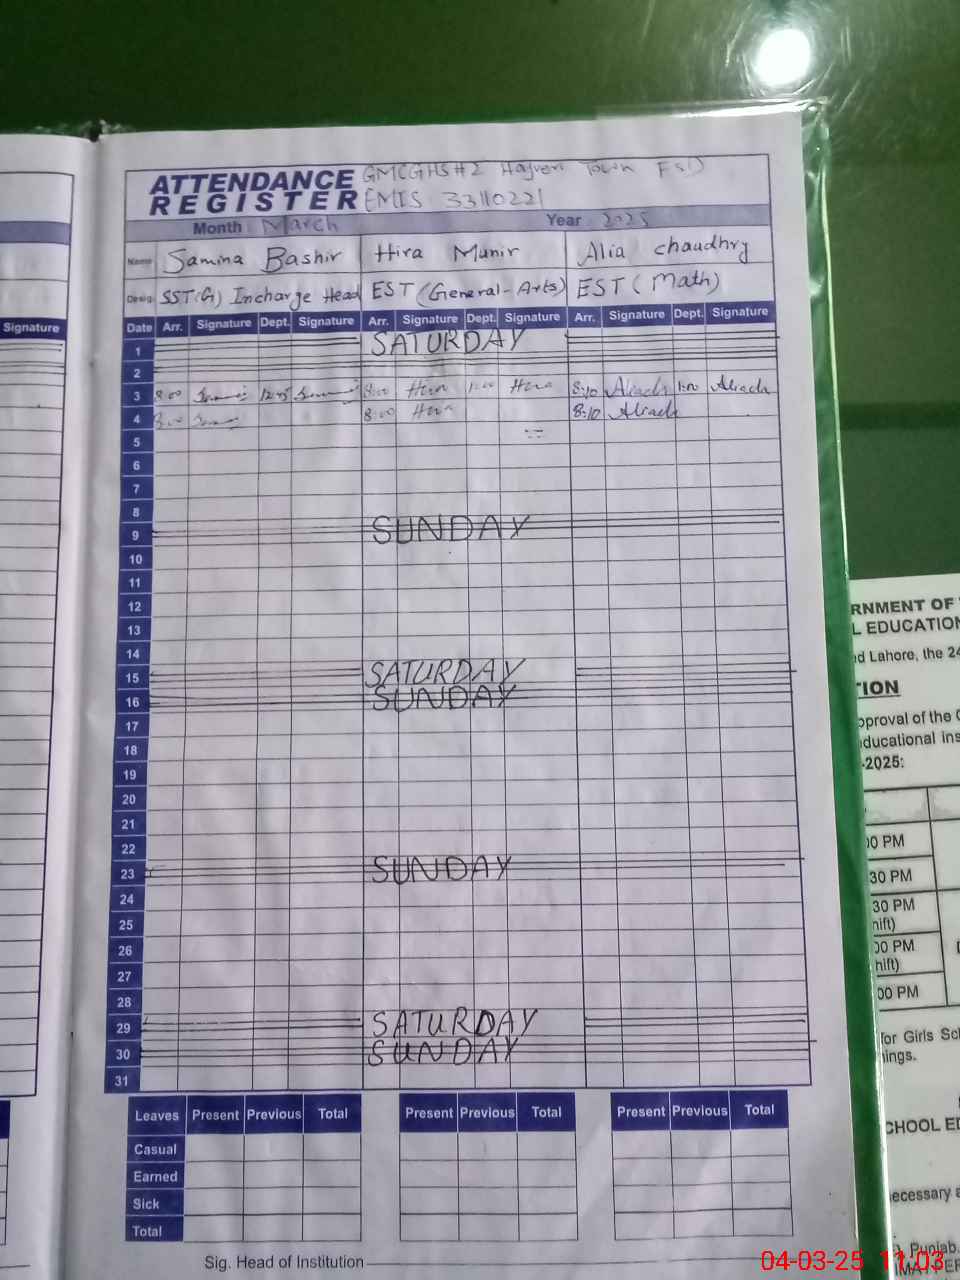 ATTENDANCE GMCGHS#2 Hajveri Town FSD
REGISTER EMIS 33110221
Month March Year 2025
Name Samina Bashir Hira Munir Alia chaudhry
Desig. SST(G) Incharge Head EST (General-Arts) EST (Math)
Signature
Date Arr. Signature Dept. Signature Arr. Signature Dept. Signature Arr. Signature Dept. Signature
1 SATURDAY
2
3 8:00 12:45 8:00 Hira 1:00 Hira 8:10 1:00
4 8:00 8:00 Hira 8:10
5
6
7
8
9 SUNDAY
10
11
12
13
14
15 SATURDAY
16 SUNDAY
17
18
19
20
21
22
23 SUNDAY
24
25
26
27
28
29 SATURDAY
30 SUNDAY
31
Leaves Present Previous Total Present Previous Total Present Previous Total
Casual
Earned
Sick
Total
Sig. Head of Institution
RNMENT OF
L EDUCATION
d Lahore, the 24
TION
pproval of the
ducational ins
-2025:
00 PM
30 PM
30 PM
hift)
00 PM
hift)
00 PM
for Girls Sch
ings.
CHOOL ED
ecessary a
Punjab.
04-03-25 11:03